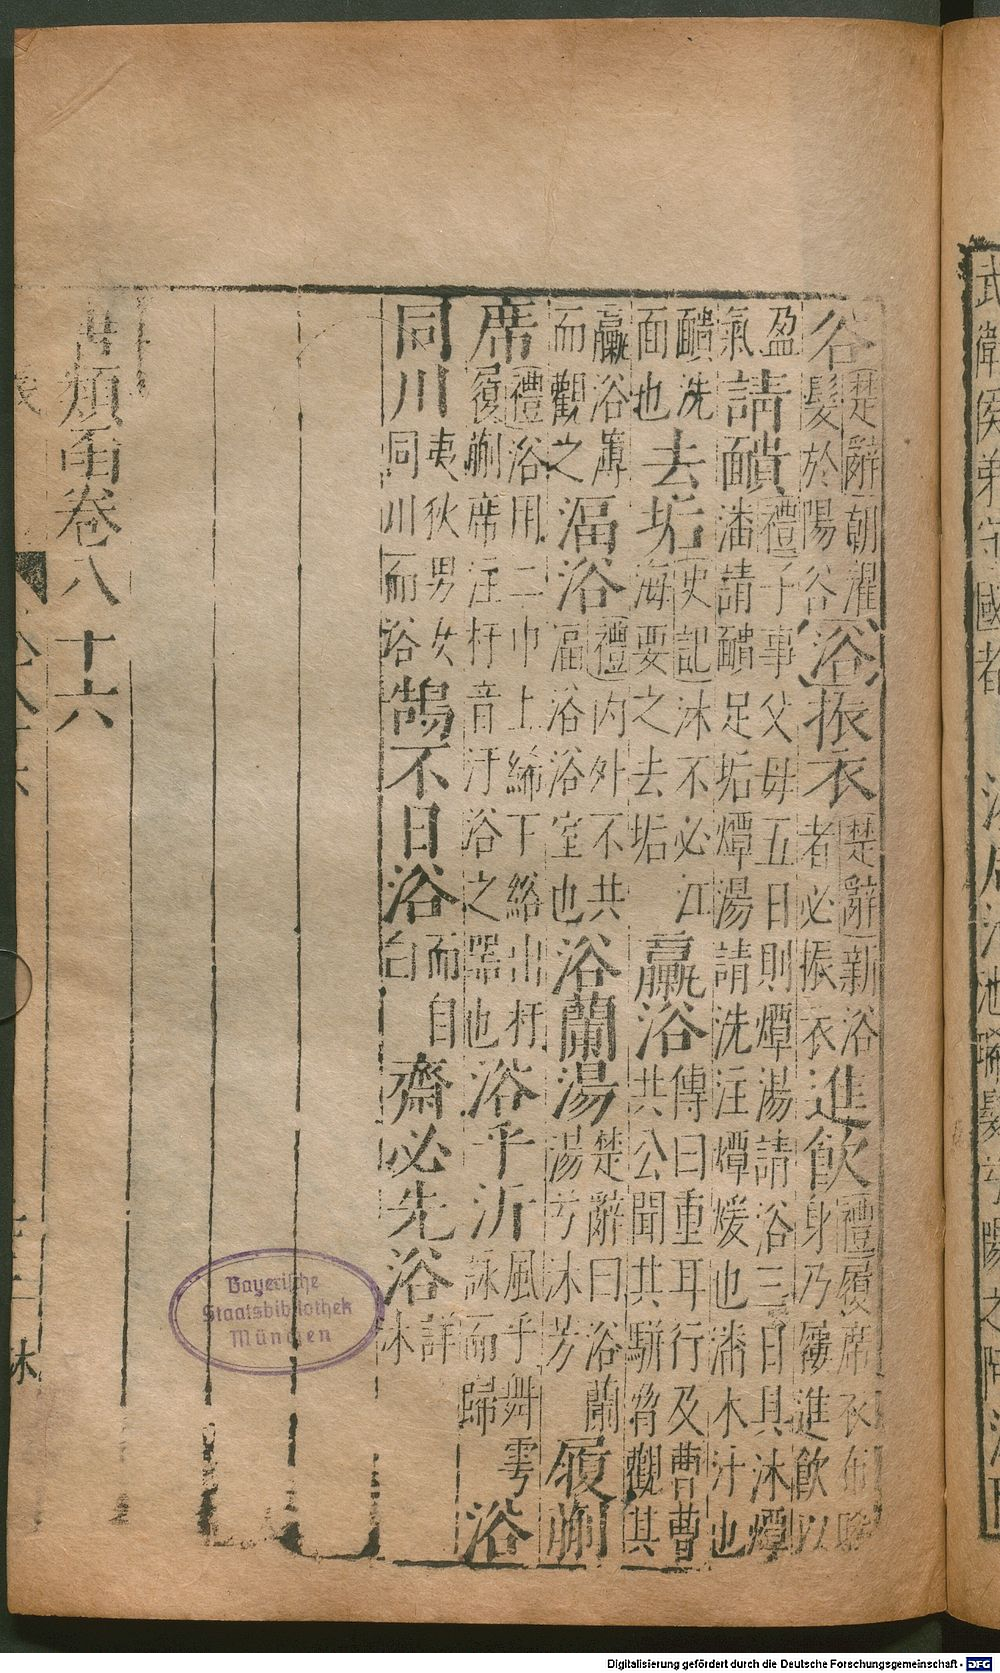 谷楚辭朝濯髮於陽谷浴振衣楚辭新浴者必振衣進飲禮履席衣布晞身乃屨進飲以
盈氣請靧禮子事父母五日則燂湯請浴三日具沐燂潘請靧足垢燂湯請洗注燂煖也潘木汁也
靧洗面也去垢史記沐不必江海要之去垢羸浴傳曰重耳行及曹曹共共公聞共駢脅觀其
羸浴薄而觀之湢浴禮内外不共湢浴浴室也浴蘭湯楚辭曰浴蘭湯兮沐芳履蒯
席禮浴用二巾上絺下綌出杅履蒯席注杅音汙浴之器也浴乎沂風乎舞雩詠而歸浴
同川夷狄男女同川而浴鵠不日浴而自白齋必先浴詳沐
類函卷八十六
Bayerische
Staatsbibliothek
München
Digitalisierung gefördert durch die Deutsche Forschungsgemeinschaft - DFG